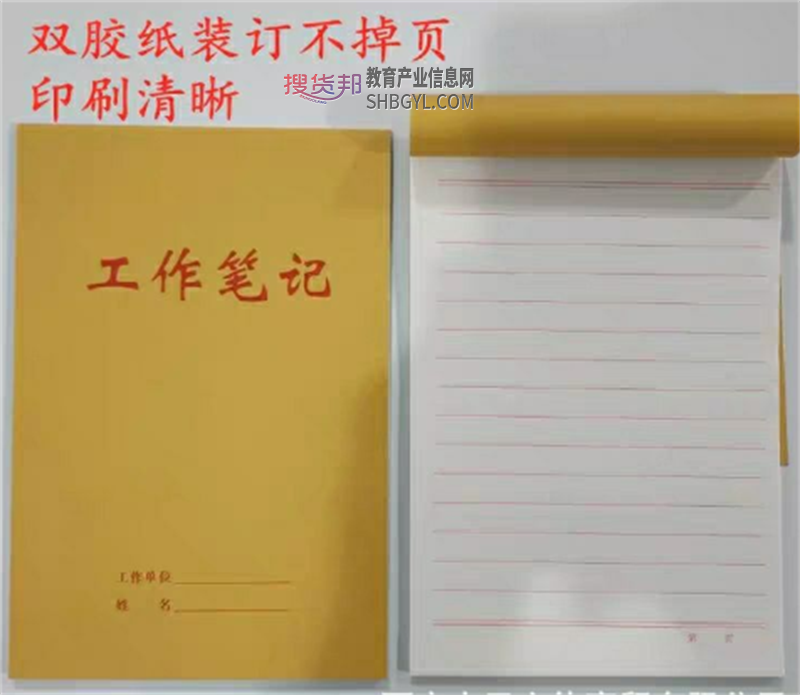 双胶纸装订不掉页
印刷清晰
搜货邦 教育产业信息网
SHBGYL.COM
工作笔记
工作单位
姓 名
第 页